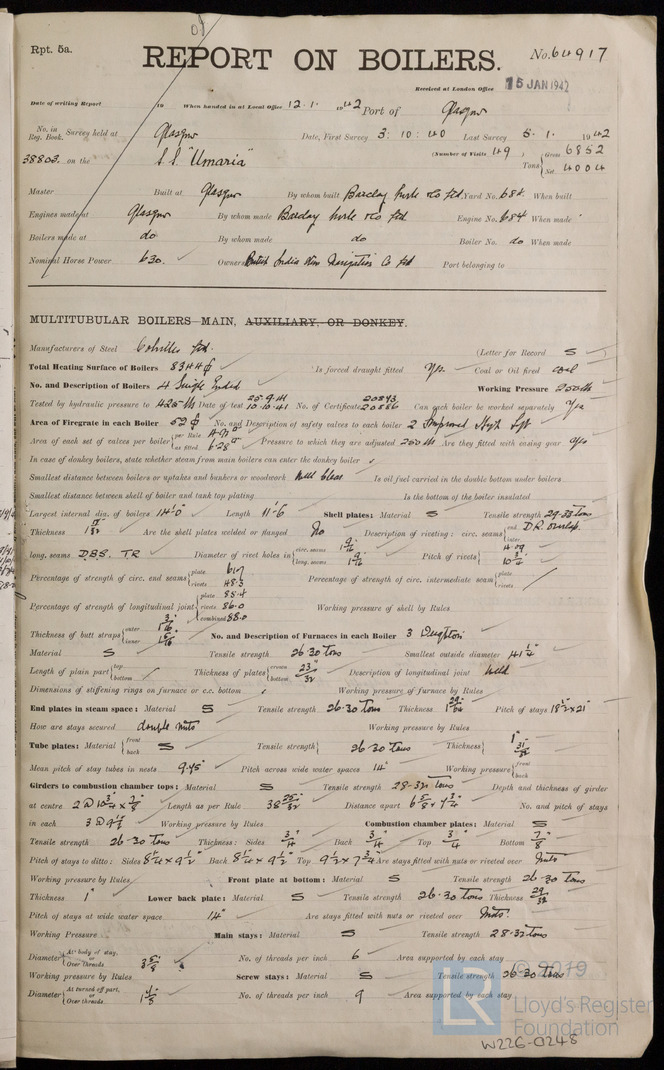 Rpt. 5a.
REPORT ON BOILERS.
No. 64917
Received at London Office 15 JAN 1942
Date of writing Report 19 When handed in at Local Office 12.1. 1942 Port of Glasgow
No. in Reg. Book. Survey held at Glasgow Date, First Survey 3:10:40 Last Survey 5.1. 1942
38803 on the S.S. "Umaria" (Number of Visits 49) Tons Gross 6852 Net 4004
Master Built at Glasgow By whom built Barclay Curle & Co Ltd. Yard No. 684 When built
Engines made at Glasgow By whom made Barclay Curle & Co Ltd Engine No. 684 When made
Boilers made at do By whom made do Boiler No. do When made
Nominal Horse Power 630. Owners British India Stm Navigation Co Ltd Port belonging to
MULTITUBULAR BOILERS MAIN, AUXILIARY, OR DONKEY.
Manufacturers of Steel Colvilles Ltd. (Letter for Record S)
Total Heating Surface of Boilers 8344 Is forced draught fitted Yes Coal or Oil fired coal
No. and Description of Boilers 4 Single Ended Working Pressure 250 lb
Tested by hydraulic pressure to 425 lb Date of test 25-9-41 10-10-41 No. of Certificate 20873 20886 Can each boiler be worked separately Yes
Area of Firegrate in each Boiler 52 No. and Description of safety valves to each boiler 2 Improved High Lift
Area of each set of valves per boiler per Rule as fitted 6.28 Pressure to which they are adjusted 250 lb Are they fitted with easing gear Yes
In case of donkey boilers, state whether steam from main boilers can enter the donkey boiler
Smallest distance between boilers or uptakes and bunkers or woodwork Well clear Is oil fuel carried in the double bottom under boilers
Smallest distance between shell of boiler and tank top plating Is the bottom of the boiler insulated
Largest internal dia. of boilers 14'-0" Length 11'-6 Shell plates: Material S Tensile strength 29-33 tons
Thickness Are the shell plates welded or flanged No Description of riveting: circ. seams end D.R. Overlap. inter.
long. seams D.B.S. T.R Diameter of rivet holes in circ. seams 1 9/16 long. seams 1 9/16 Pitch of rivets 4.09 10 3/4
Percentage of strength of circ. end seams plate 61.7 rivets 48.3 Percentage of strength of circ. intermediate seam plate rivets
Percentage of strength of longitudinal joint plate 85.4 rivets 86.0 combined 88.0 Working pressure of shell by Rules
Thickness of butt straps outer inner No. and Description of Furnaces in each Boiler 3 Deighton
Material S Tensile strength 26-30 tons Smallest outside diameter 41 1/4"
Length of plain part top bottom Thickness of plates crown bottom 23/32" Description of longitudinal joint Weld
Dimensions of stiffening rings on furnace or c.c. bottom Working pressure of furnace by Rules
End plates in steam space: Material S Tensile strength 26-30 tons Thickness Pitch of stays 18 1/2 x 21"
How are stays secured double nuts Working pressure by Rules
Tube plates: Material front back S Tensile strength 26-30 tons Thickness 1" 31/32"
Mean pitch of stay tubes in nests 9.45" Pitch across wide water spaces 14" Working pressure front back
Girders to combustion chamber tops: Material S Tensile strength 28-32 tons Depth and thickness of girder
at centre 2 @ 10 3/4 x 7/8 Length as per Rule 38 25/32 Distance apart No. and pitch of stays
in each 3 @ 9 1/2 Working pressure by Rules Combustion chamber plates: Material S
Tensile strength 26-30 tons Thickness: Sides 3/4" Back 3/4" Top 3/4" Bottom 7/8"
Pitch of stays to ditto: Sides 8 1/4 x 9 1/2 Back 8 1/4 x 9 1/2 Top 9 1/2 x 7 3/4 Are stays fitted with nuts or riveted over Nuts
Working pressure by Rules Front plate at bottom: Material S Tensile strength 26-30 tons
Thickness 1" Lower back plate: Material S Tensile strength 26-30 tons Thickness 29/32"
Pitch of stays at wide water space 14" Are stays fitted with nuts or riveted over Nuts.
Working Pressure Main stays: Material S Tensile strength 28-32 tons
Diameter At body of stay, or Over threads 3 5/8" No. of threads per inch 6 Area supported by each stay
Working pressure by Rules Screw stays: Material S Tensile strength 26-30 tons
Diameter At turned off part, or Over threads No. of threads per inch 9 Area supported by each stay
© 2019
Lloyd's Register
Foundation
W226-0248